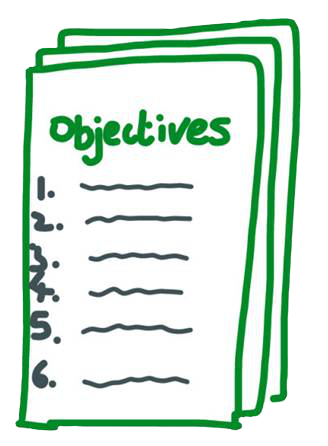 Objectives
1.
2.
3.
4.
5.
6.